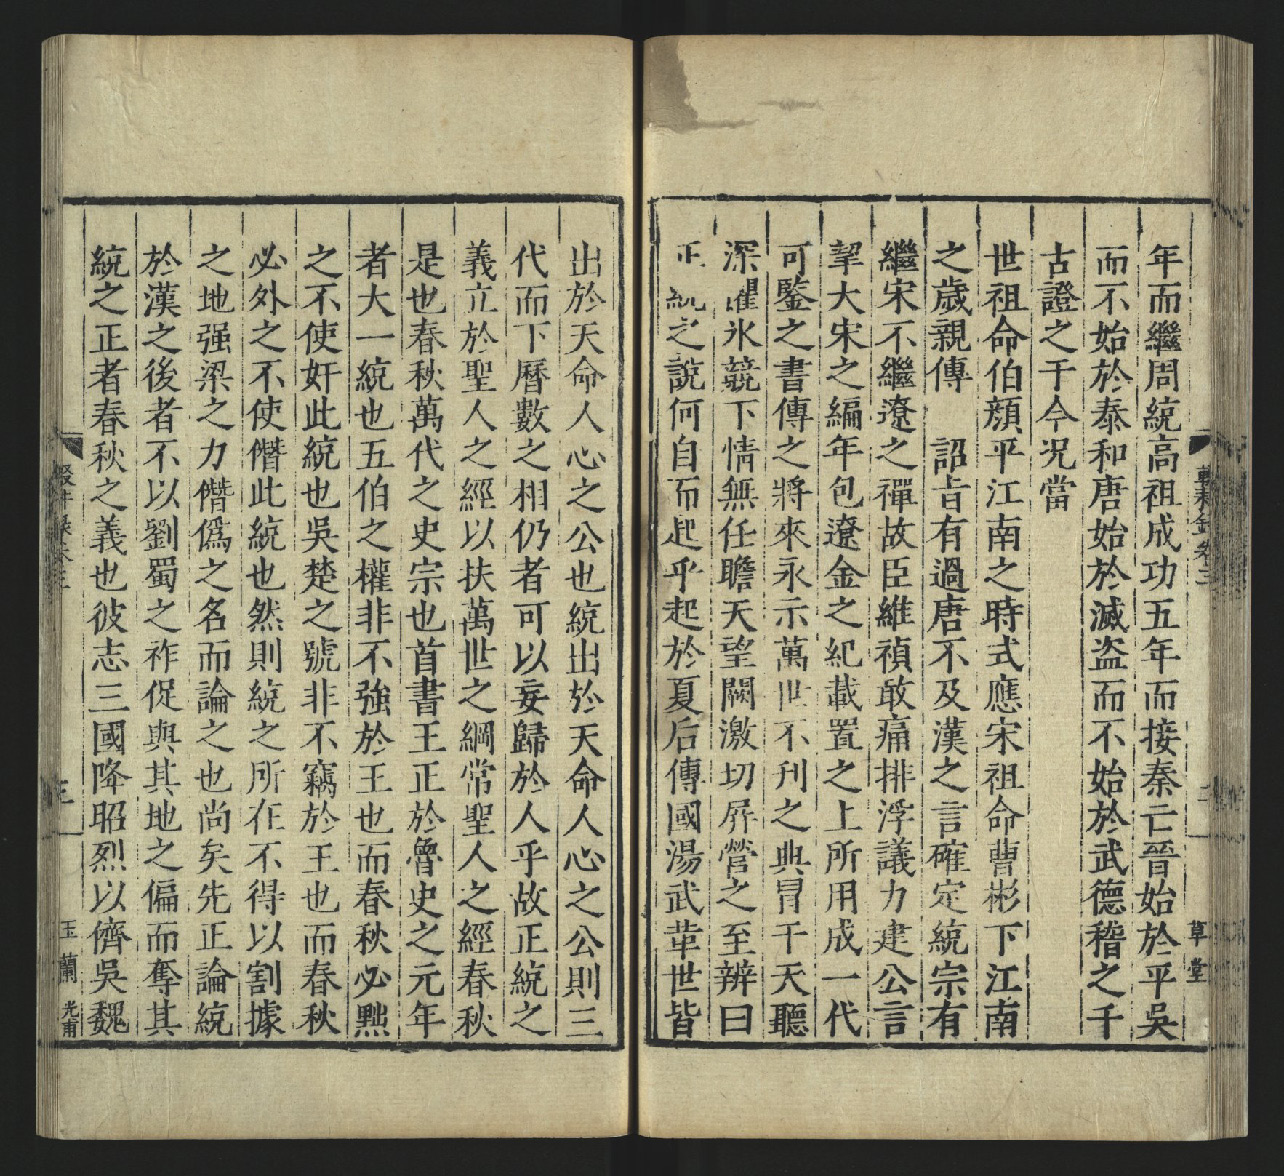 年而繼周統高祖成功五年而接秦亡晉始於平吳
而不始於泰和唐始於滅盗而不始於武德稽之千
古證之于今况當
世祖命伯顔平江南之時式應宋祖命曹彬下江南
之歲親傳　詔旨有過唐不及漢之言確定統宗有
繼宋不繼遼之禪故臣維禎敢痛排浮議力建公言
挈大宋之編年包遼金之紀載置之上所用成一代
可鍳之書傳之將來永示萬世不刋之典冒干天聽
深懼氷兢下情無任瞻天望闕激切屏營之至辨曰
正統之說何自而起乎起於夏后傳國湯武革世皆
出於天命人心之公也統出於天命人心之公則三
代而下曆數之相仍者可以妄歸於人乎故正統之
義立於聖人之經以扶萬世之綱常聖人之經春秋
是也春秋萬代之史宗也首書王正於魯史之元年
者大一統也五伯之權非不強於王也而春秋必黜
之不使奸此統也吳楚之號非不竊於王也而春秋
必外之不使僭此統也然則統之所在不得以割據
之地强梁之力僭僞之名而論之也尚矣先正論統
於漢之後者不以劉蜀之祚促與其地之偏而奪其
統之正者春秋之義也彼志三國降昭烈以儕吳魏
輟耕錄卷三
草堂
三
玉蘭
光甫